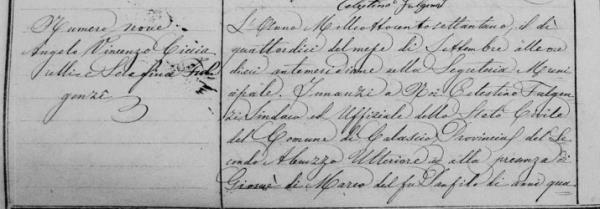 Celestino Fulgenzi
Numero nove
Angelo Vincenzo Ciccia
relli e Serafina Ful
genzi
L'Anno Milleottocentosettantuno, il dì
quattordici del mese di Settembre alle ore
dieci antemeridiane nella Segreteria Muni
cipale. Innanzi a Noi Celestino Fulgen
zi Sindaco ed Uffiziale dello Stato Civile
del Comune di Calascio, Provincia del Se
condo Abruzzo Ulteriore ed alla presenza di
Giosuè di Marco del fu Panfilo di anni qua